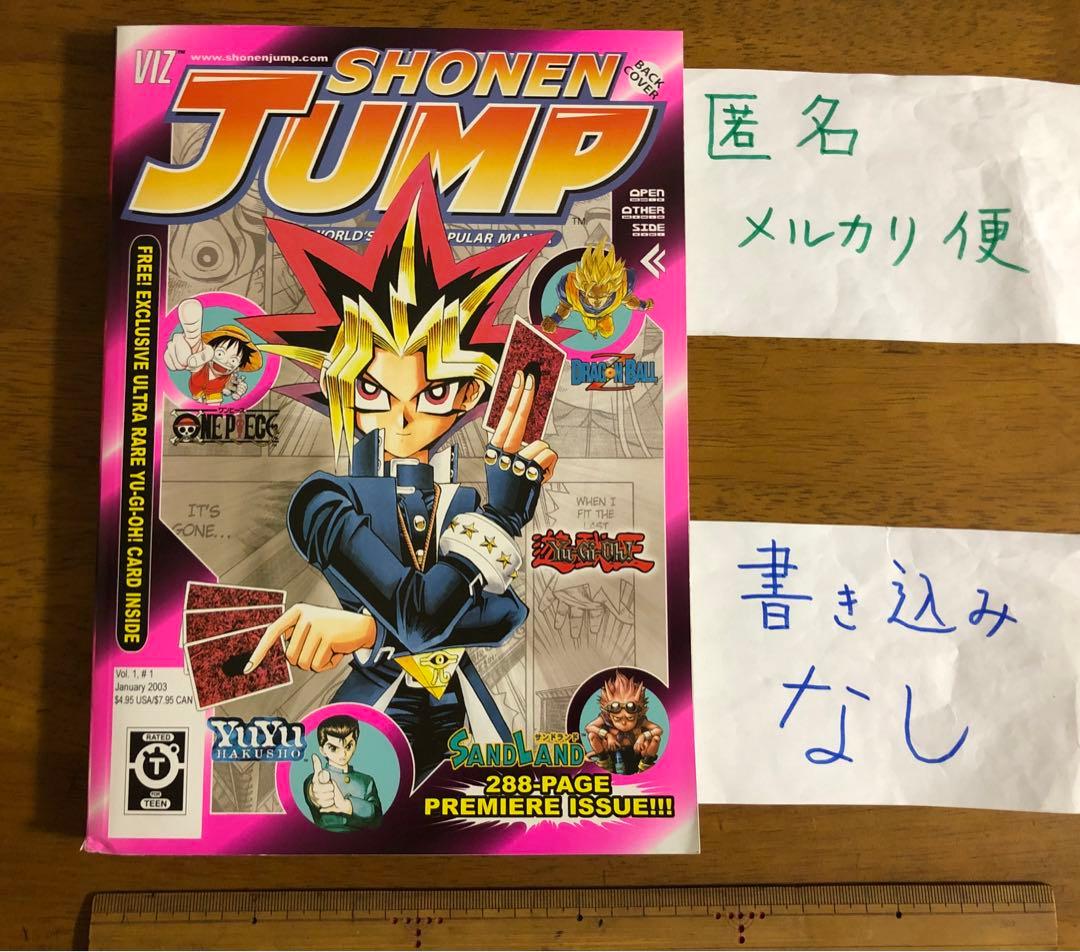 VIZ
www.shonenjump.com
SHONEN
JUMP
BACK
COVER
OPEN
OTHER
SIDE
TM
WORLD'S
MAN
FREE! EXCLUSIVE ULTRA RARE YU-GI-OH! CARD INSIDE
ワンピース
ONE PIECE
DRAGON BALL
Z
IT'S
GONE...
WHEN I
FIT THE
LAST
Yu-Gi-Oh!
Vol. 1, # 1
January 2003
$4.95 USA/$7.95 CAN
RATED
T
FOR
TEEN
YuYu
HAKUSHO
サンドランド
SANDLAND
288-PAGE
PREMIERE ISSUE!!!
匿名
メルカリ便
書き込み
なし